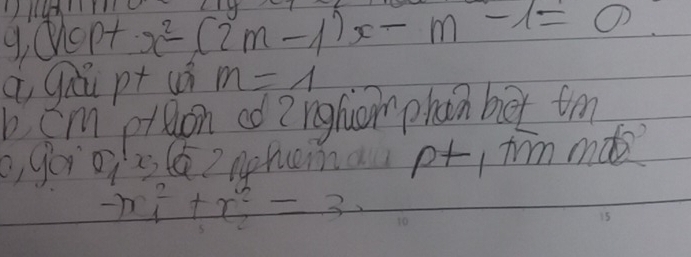 g, Cho pt x² - (2m - 1)x - m - 1 = 0
a, giải pt với m = 1
b, CM pt luôn có 2 nghiệm phân biệt ∀m
c, gọi x₁, x₂ là 2 nghiệm pt, tìm m để
x₁² + x₂² = 3.
5 10 15